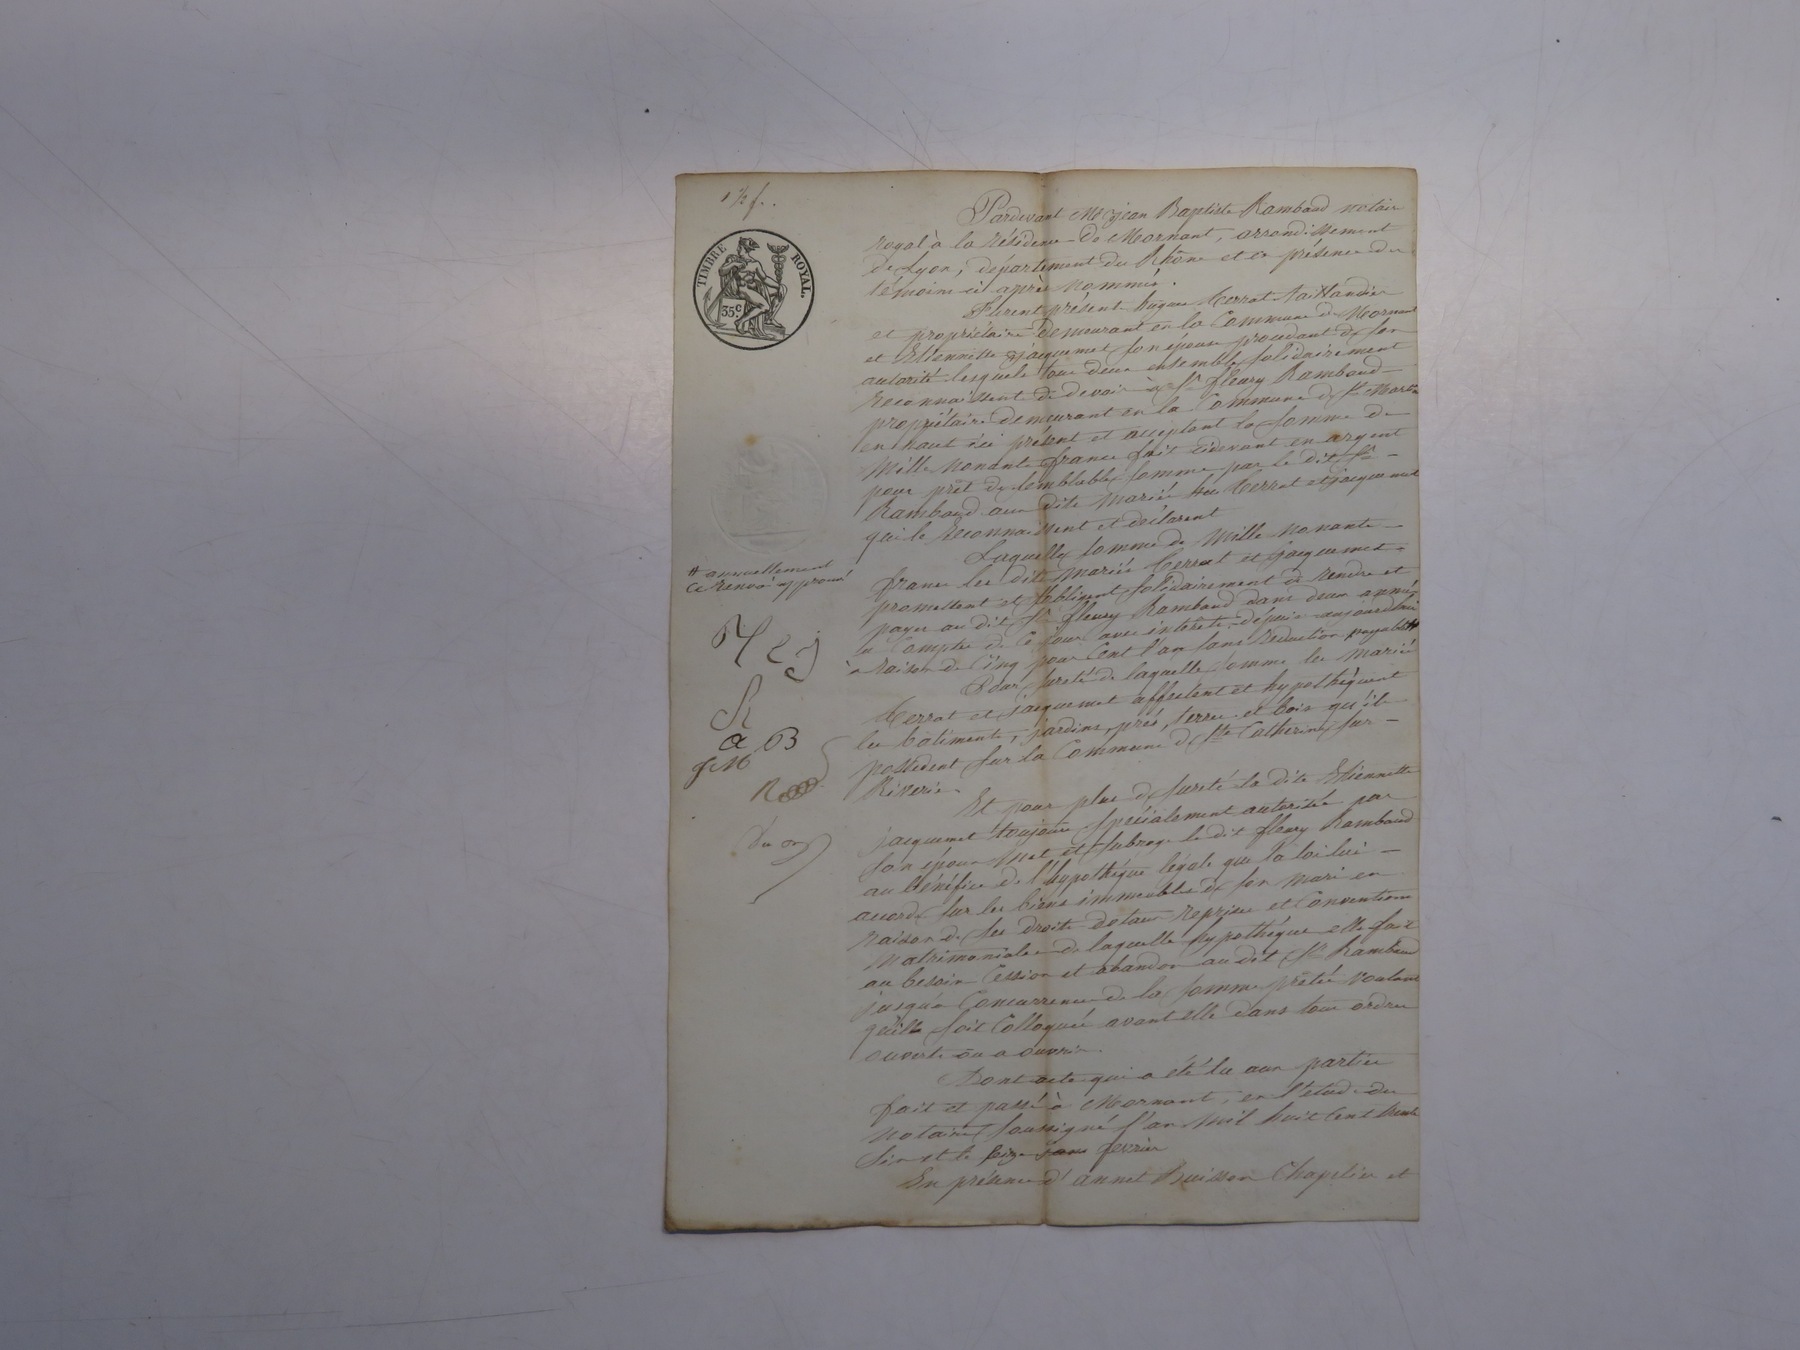 1 ½ f.
TIMBRE ROYAL.
35 c.
Pardevant Me jean Baptiste Rambaud notaire
royal à la résidence de Mornant, arrondissement
de Lyon, département du Rhône et en présence des
témoins ci après nommés.
Furent présent hugue Cerrat taillandier
et propriétaire demeurant en la Commune de Mornant
et Etiennette jacquemet son épouse procédant de son
autorité lesquels tous deux ensemble solidairement
reconnaissent de devoir à Sr fleury Rambaud
propriétaire demeurant en la Commune de St Martin
en haut ici présent et acceptant la somme de
Mille nonante francs fait cidevant en argent
pour prêt de semblable somme par le dit Sr
Rambaud aux dits mariés Cerrat et jacquemet
qui le reconnaissent et déclarent
Laquelle somme de Mille nonante
francs les dits mariés Cerrat et jacquemet
promettent et s'obligent solidairement de rendre et
payer au dit Sr fleury Rambaud dans deux années
à Compter de Ce jour avec intérêts depuis aujourd'hui
à raison de Cinq pour Cent l'an sans réduction payable #
# annuellement
Ce Renvoi approuvé
Pour sureté de laquelle somme les mariés
Cerrat et jacquemet affectent et hypothèquent
les bâtiments, jardins, prés, terres et bois qu'ils
possèdent sur la Commune de Ste Catherine sur
Riverie.
a B
Et pour plus de sureté la dite Etiennette
jacquemet toujours spécialement autorisée par
son époux met et subroge le dit fleury Rambaud
au bénéfice de l'hypothèque légale que la loi lui
accorde sur les biens immeubles de son mari en
raison de ses droits dotaux reprises et Conventions
matrimoniales de laquelle hypothèque elle fait
au besoin Cession et abandon au dit Sr Rambaud
jusqu'à Concurrence de la somme prêtée voulant
qu'il soit Colloqué avant elle dans tous ordres
ouverts ou a ouvrir.
Dont acte qui a été lu aux parties
fait et passé à Mornant, en l'étude du
notaire soussigné l'an mil huit Cent trente
six et le seize fevrier
En présence d'annet Buisson Chapelier et